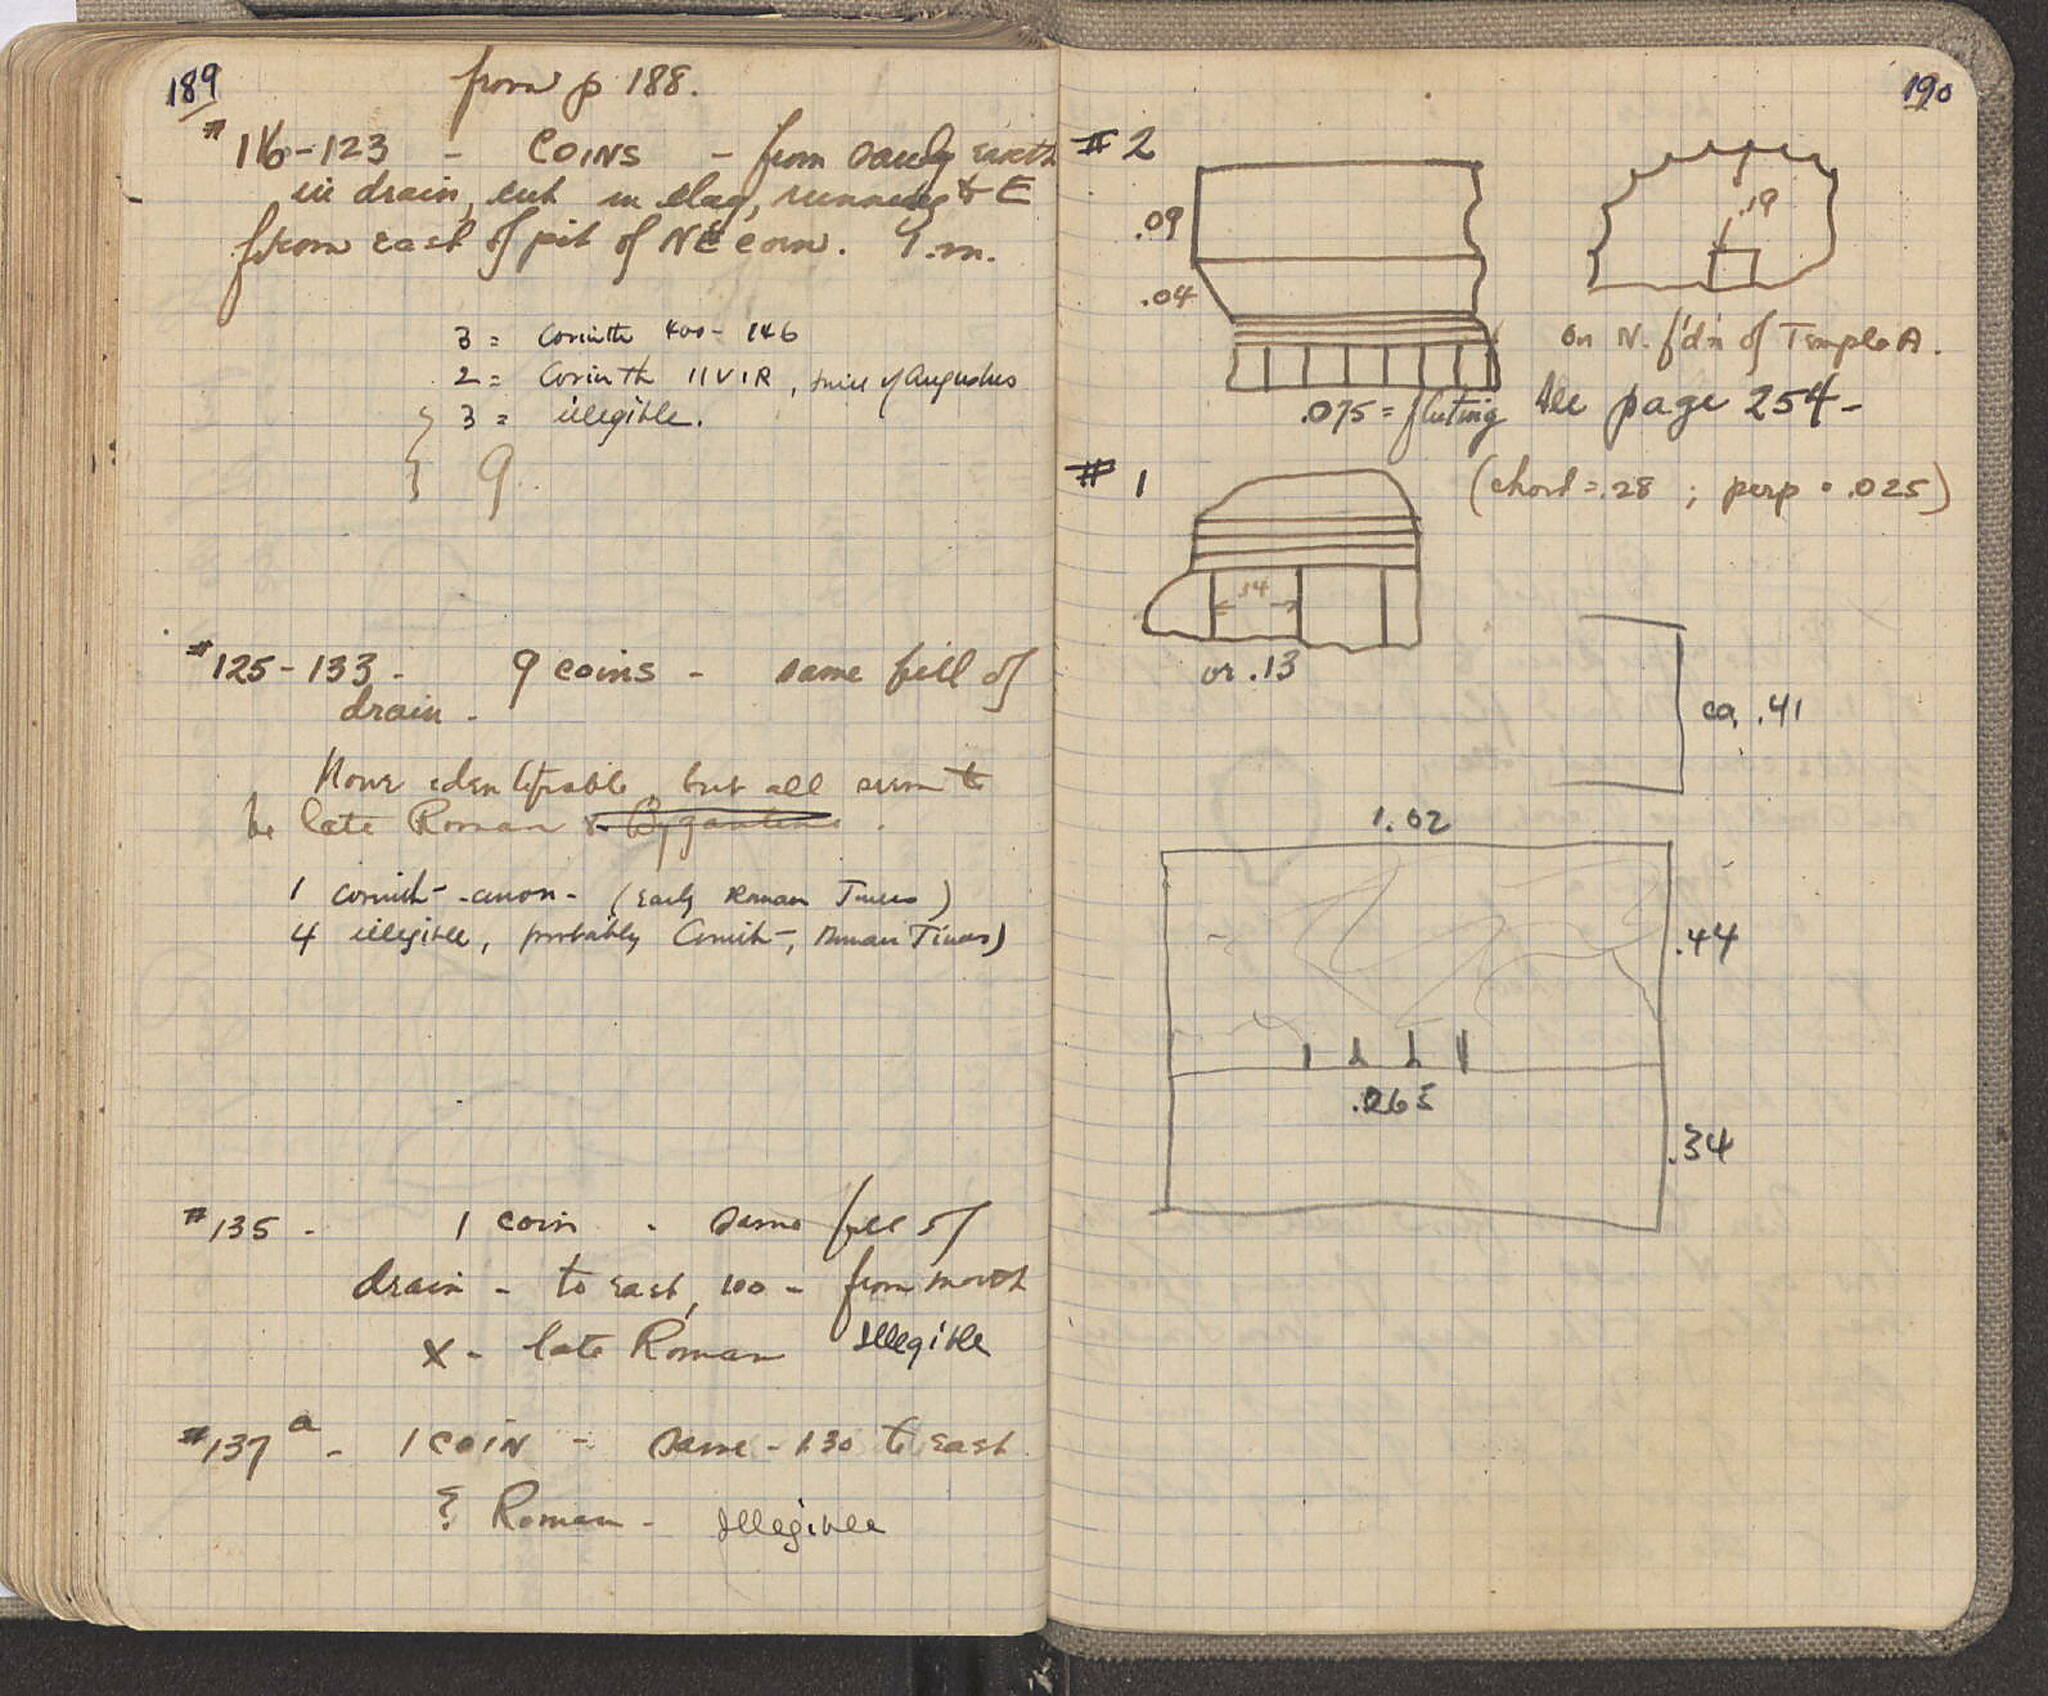 189
from p 188.
#116-123 - COINS - from sandy earth
in drain, cut in clay, running to E
from east of pit of NE corn. 9.m.
3 = Corinth 400-146
2 = Corinth IIVIR, time of Augustus
3 = illegible.
9
#125-133 - 9 coins - same fill of
drain -
None identifiable, but all seem to
be late Roman & Byzantine.
1 Corinth - anon - (Early Roman Times)
4 illegible, probably Corinth, Roman Times)
#135 - 1 coin - same fill of
drain - to east, 100 - from mouth
x - late Roman Illegible
#137a - 1 COIN - same - 1.30 to east
Roman - Illegible
190
#2
.09
.04
.19
on N. f'd'n of Temple A.
.075 = fluting See page 254-
#1
(chord = .28 ; perp = .025)
.14
or .13
ca. .41
1.02
.44
.265
.34